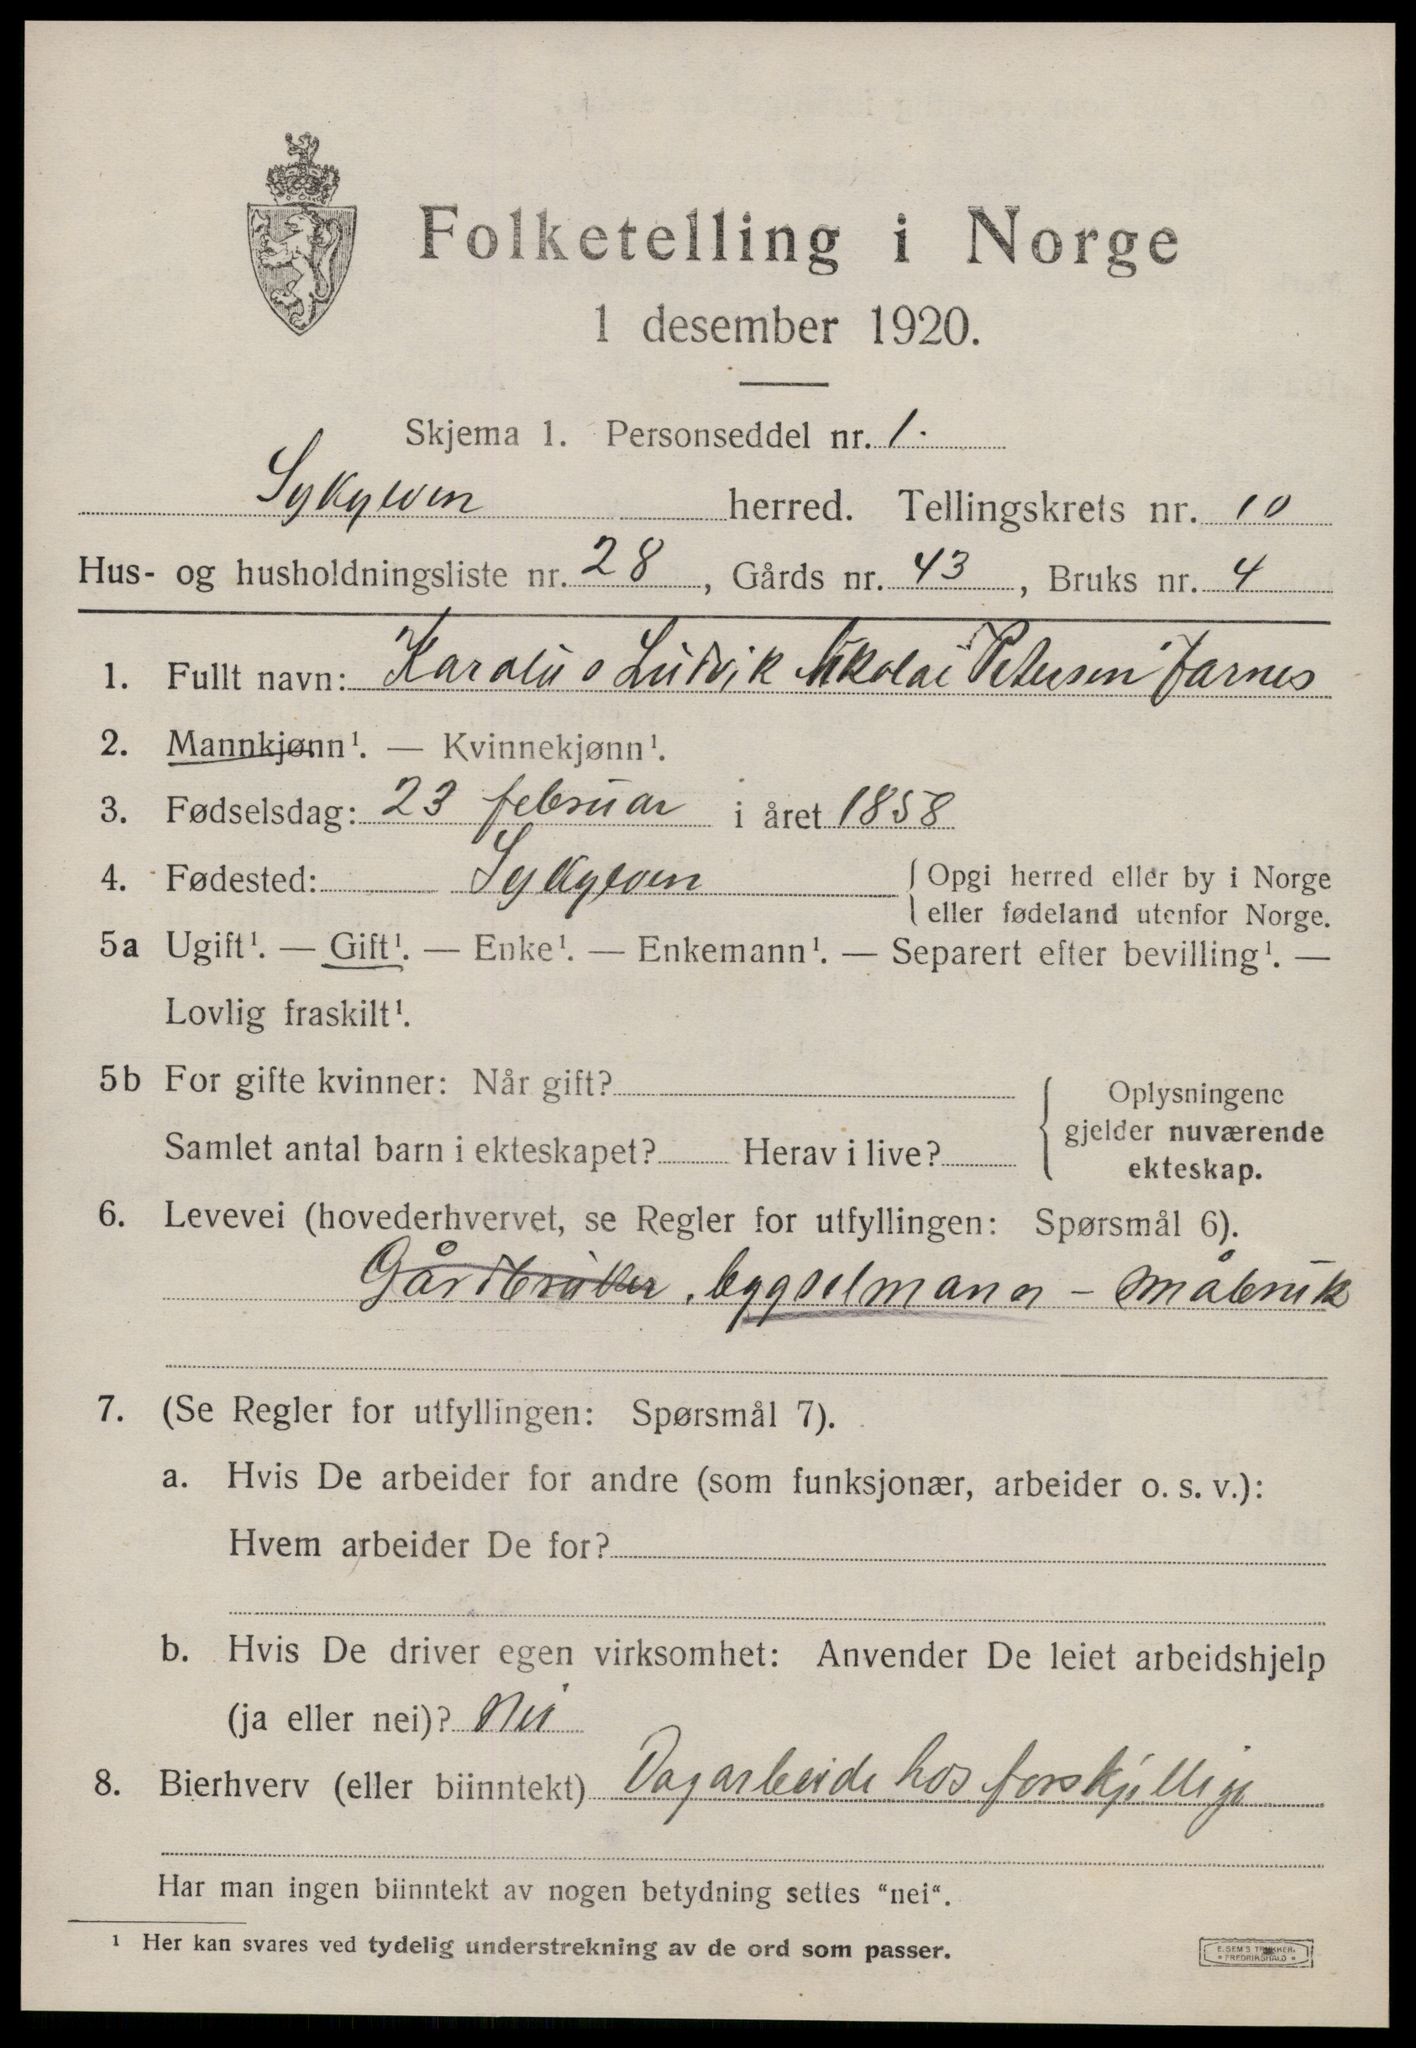 Folketelling i Norge
1 desember 1920.
Skjema 1. Personseddel nr. 1.
Sykylven herred. Tellingskrets nr. 10
Hus- og husholdningsliste nr. 28, Gårds nr. 43, Bruks nr. 4
1. Fullt navn: Karolus Ludvik Nikolai Petersen Jarnes
2. Mannkjønn¹. — Kvinnekjønn¹.
3. Fødselsdag: 23 februar i året 1858
4. Fødested: Sykylven { Opgi herred eller by i Norge
eller fødeland utenfor Norge.
5a Ugift¹. — Gift¹. — Enke¹. — Enkemann¹. — Separert efter bevilling¹. —
Lovlig fraskilt¹.
5b For gifte kvinner: Når gift?
Samlet antal barn i ekteskapet? Herav i live?
{ Oplysningene
gjelder nuværende
ekteskap.
6. Levevei (hovederhvervet, se Regler for utfyllingen: Spørsmål 6).
Gårdbruker, bygselmann - småbruk
7. (Se Regler for utfyllingen: Spørsmål 7).
a. Hvis De arbeider for andre (som funksjonær, arbeider o. s. v.):
Hvem arbeider De for?
b. Hvis De driver egen virksomhet: Anvender De leiet arbeidshjelp
(ja eller nei)? Nei
8. Bierhverv (eller biinntekt) Dagarbeide hos forskjellige
Har man ingen biinntekt av nogen betydning settes "nei".
¹ Her kan svares ved tydelig understrekning av de ord som passer.
E. SEM'S TRYKKERI
FREDRIKSHALD